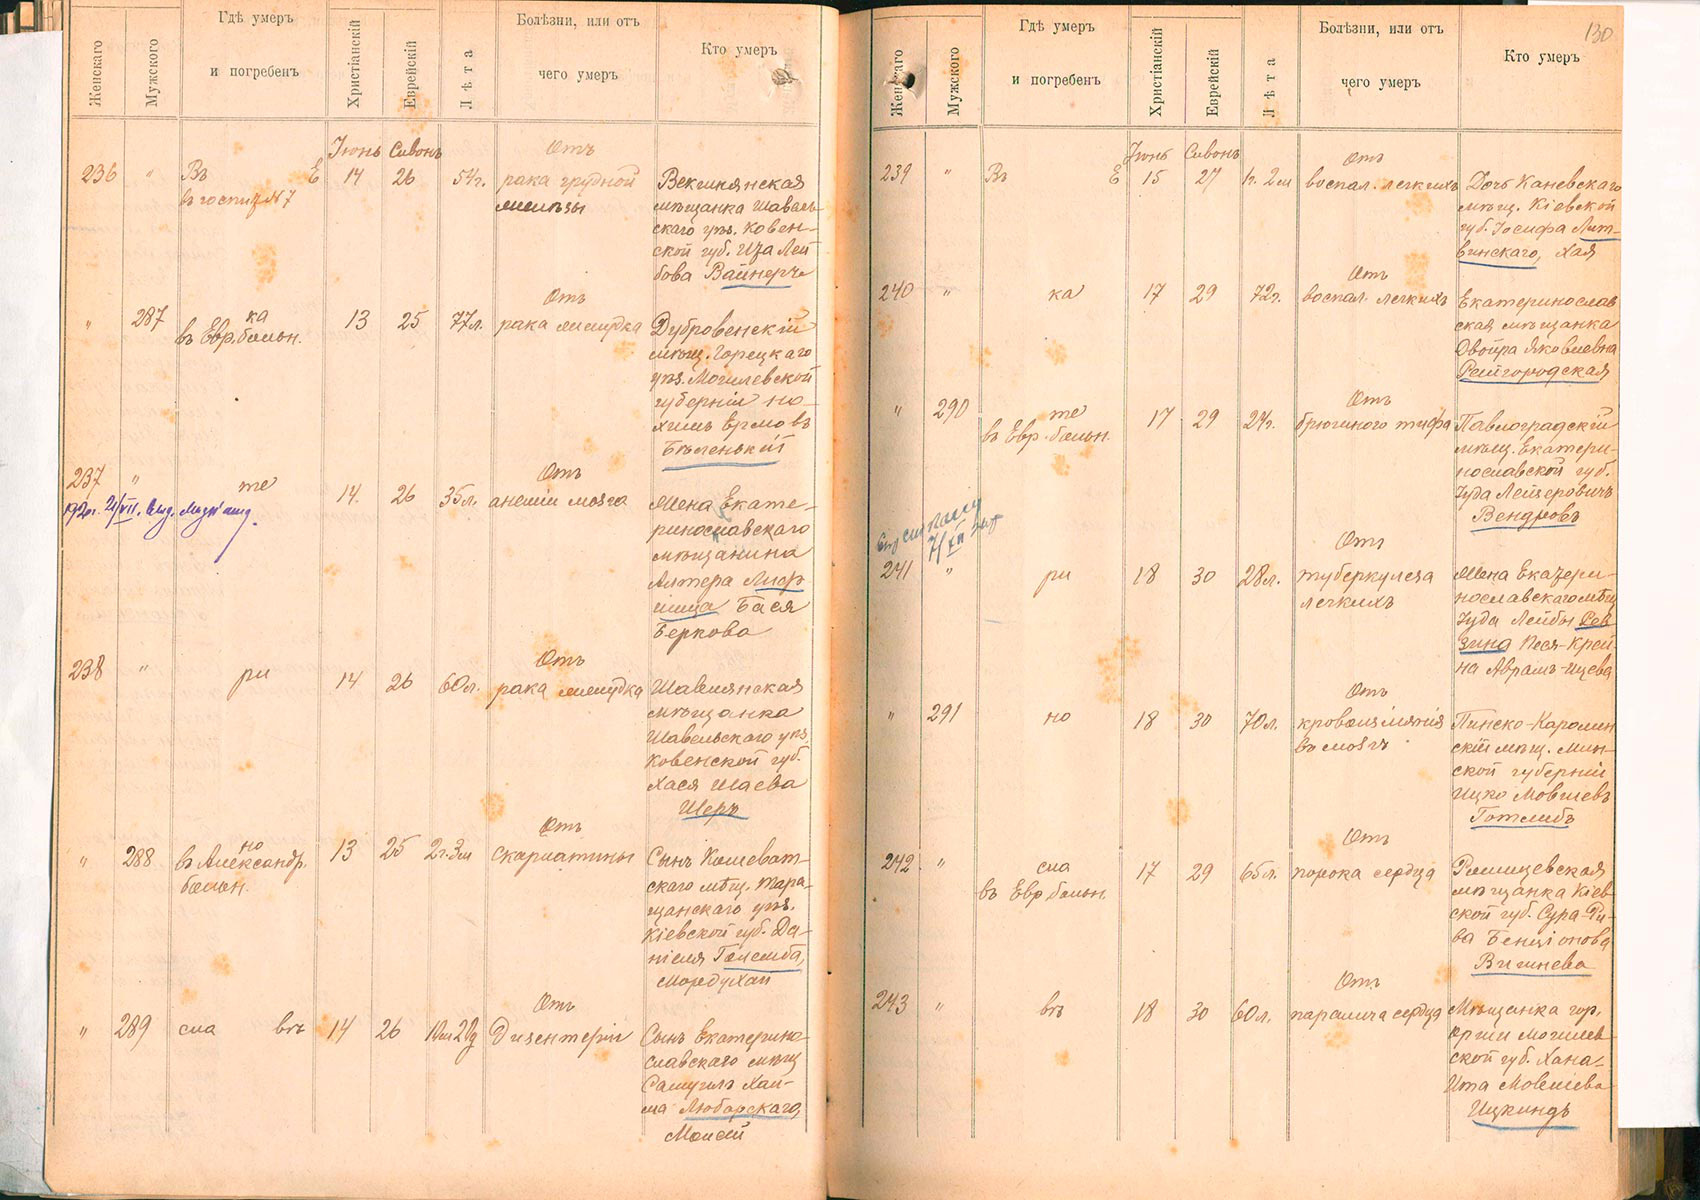 Женскаго
Мужского
Гдѣ умеръ
и погребенъ
Христіанскій
Еврейскій
Лѣта
Болѣзни, или отъ
чего умеръ
Кто умеръ
Іюнь Сивонъ
236 " Въ Е 14 26 54г. Отъ
рака грудной
железы
Векшнянская
мѣщанка Шавель-
скаго уѣз. Ковен-
ской губ. Иза Лей
бова Вайнеръ
" 287 ка
въ Евр. больн. 13 25 77л. Отъ
рака желудка
Дубровенскій
мѣщ. Горецкаго
уѣз. Могилевской
губерніи но-
химъ Ермовъ
Бѣленькій
237 " те 14. 26 35л. Отъ
анеміи мозга
Жена Екате-
ринославскаго
мѣщанина
Алтера Лиф
шица Бася
Беркова
238 " ри 14 26 60л. Отъ
рака желудка
Шавлянская
мѣщанка
Шавельскаго уѣз.
Ковенской губ.
Хася Шаева
Шеръ
" 288 но
въ Александр.
больн. 13 25 2г. 3м Отъ
скарлатины
Сынъ Кошеват-
скаго мѣщ. Тара-
щанскаго уѣз.
Кіевской губ. Да-
ніеля Големба,
Мордухай
" 289 сла въ 14 26 Отъ
Дизентеріи
Сынъ Екатерино-
славскаго мѣщ
Самуилъ Хаи-
ма Любарскаго,
Моисей
130
Женскаго
Мужского
Гдѣ умеръ
и погребенъ
Христіанскій
Еврейскій
Лѣта
Болѣзни, или отъ
чего умеръ
Кто умеръ
Іюнь Сивонъ
239 " Въ Е 15 27 1г. 2м Отъ
воспал. легкихъ
Дочь Каневскаго
мѣщ. Кіевской
губ. Іосифа Лит-
винскаго, Хая
240 " ка 17 29 72г. Отъ
воспал. легкихъ
Екатеринослав
ская мѣщанка
Двойра Яковлевна
Райгородская
" 290 те
въ Евр. больн. 17 29 24г. Отъ
брюшного тифа
Павлоградскій
мѣщ. Екатери-
нославской губ.
Іуда Лейзеровичъ
Вендровъ
241 " ри 18 30 28л. Отъ
туберкулеза
легкихъ
Жена Екатери-
нославскаго мѣщ
Іуда Лейбы Рев
зина Песя-Крей
на Аврамъ-Ицева
" 291 но 18 30 70л. Отъ
кровоизліянія
въ мозгъ
Пинско-Каролин
скій мѣщ. Мин-
ской губерніи
Ицко Мовшевъ
Готлибъ
242 " сла
въ Евр. больн. 17 29 65л. Отъ
порока сердца
Ржищевская
мѣщанка Кіев-
ской губ. Сура-Ри-
ва Бенціонова
Вишнева
243 " въ 18 30 60л. Отъ
паралича сердца
Мѣщанка гор.
Орши Могилев-
ской губ. Хана-
Ита Мовшева
Ицкиндъ